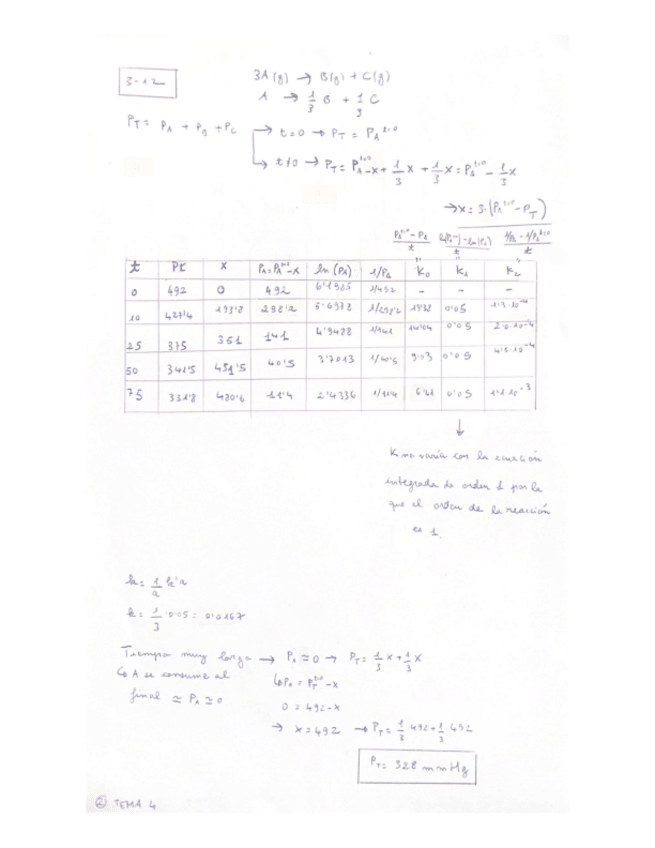 3-12
3A(g) → B(g) + C(g)
A → 1/3 B + 1/3 C
PT = PA + PB + PC → t=0 → PT = PA^t=0
↳ t≠0 → PT = PA^t=0 -x + 1/3 x + 1/3 x = PA^t=0 - 1/3 x
→ x = 3·(PA^t=0 - PT)
PA^t=0 - PA / t   ln(PA^t=0) - ln(PA) / t   1/PA - 1/PA^t=0 / t
t PT x PA=PA^t=0-x ln(PA) 1/PA K0 K1 K2
0 492 0 492 6'1985 1/492 - - -
10 427'4 193'8 298'2 5'6978 1/298'2 0'05
25 375 351 141 4'9488 1/141 14'04 0'05 2'0·10^-4
50 341'5 451'5 40'5 3'7013 1/40'5 9'03 0'05 4'5·10^-4
75 331'8 480'6 11'4 2'4336 0'05
↓
K no varía con la ecuación
integrada de orden 1 por lo
que el orden de la reacción
es 1.
k = 1/a k'a
k = 1/3 · 0'05 = 0'0167
Tiempo muy largo → PA ≃ 0 → PT = 1/3 x + 1/3 x
↳ A se consume al ↳ PA = PT^t=0 - x
final ≃ PA ≃ 0
0 = 492 - x
→ x = 492 → PT = 1/3 492 + 1/3 492
PT = 328 mmHg
② TEMA 4